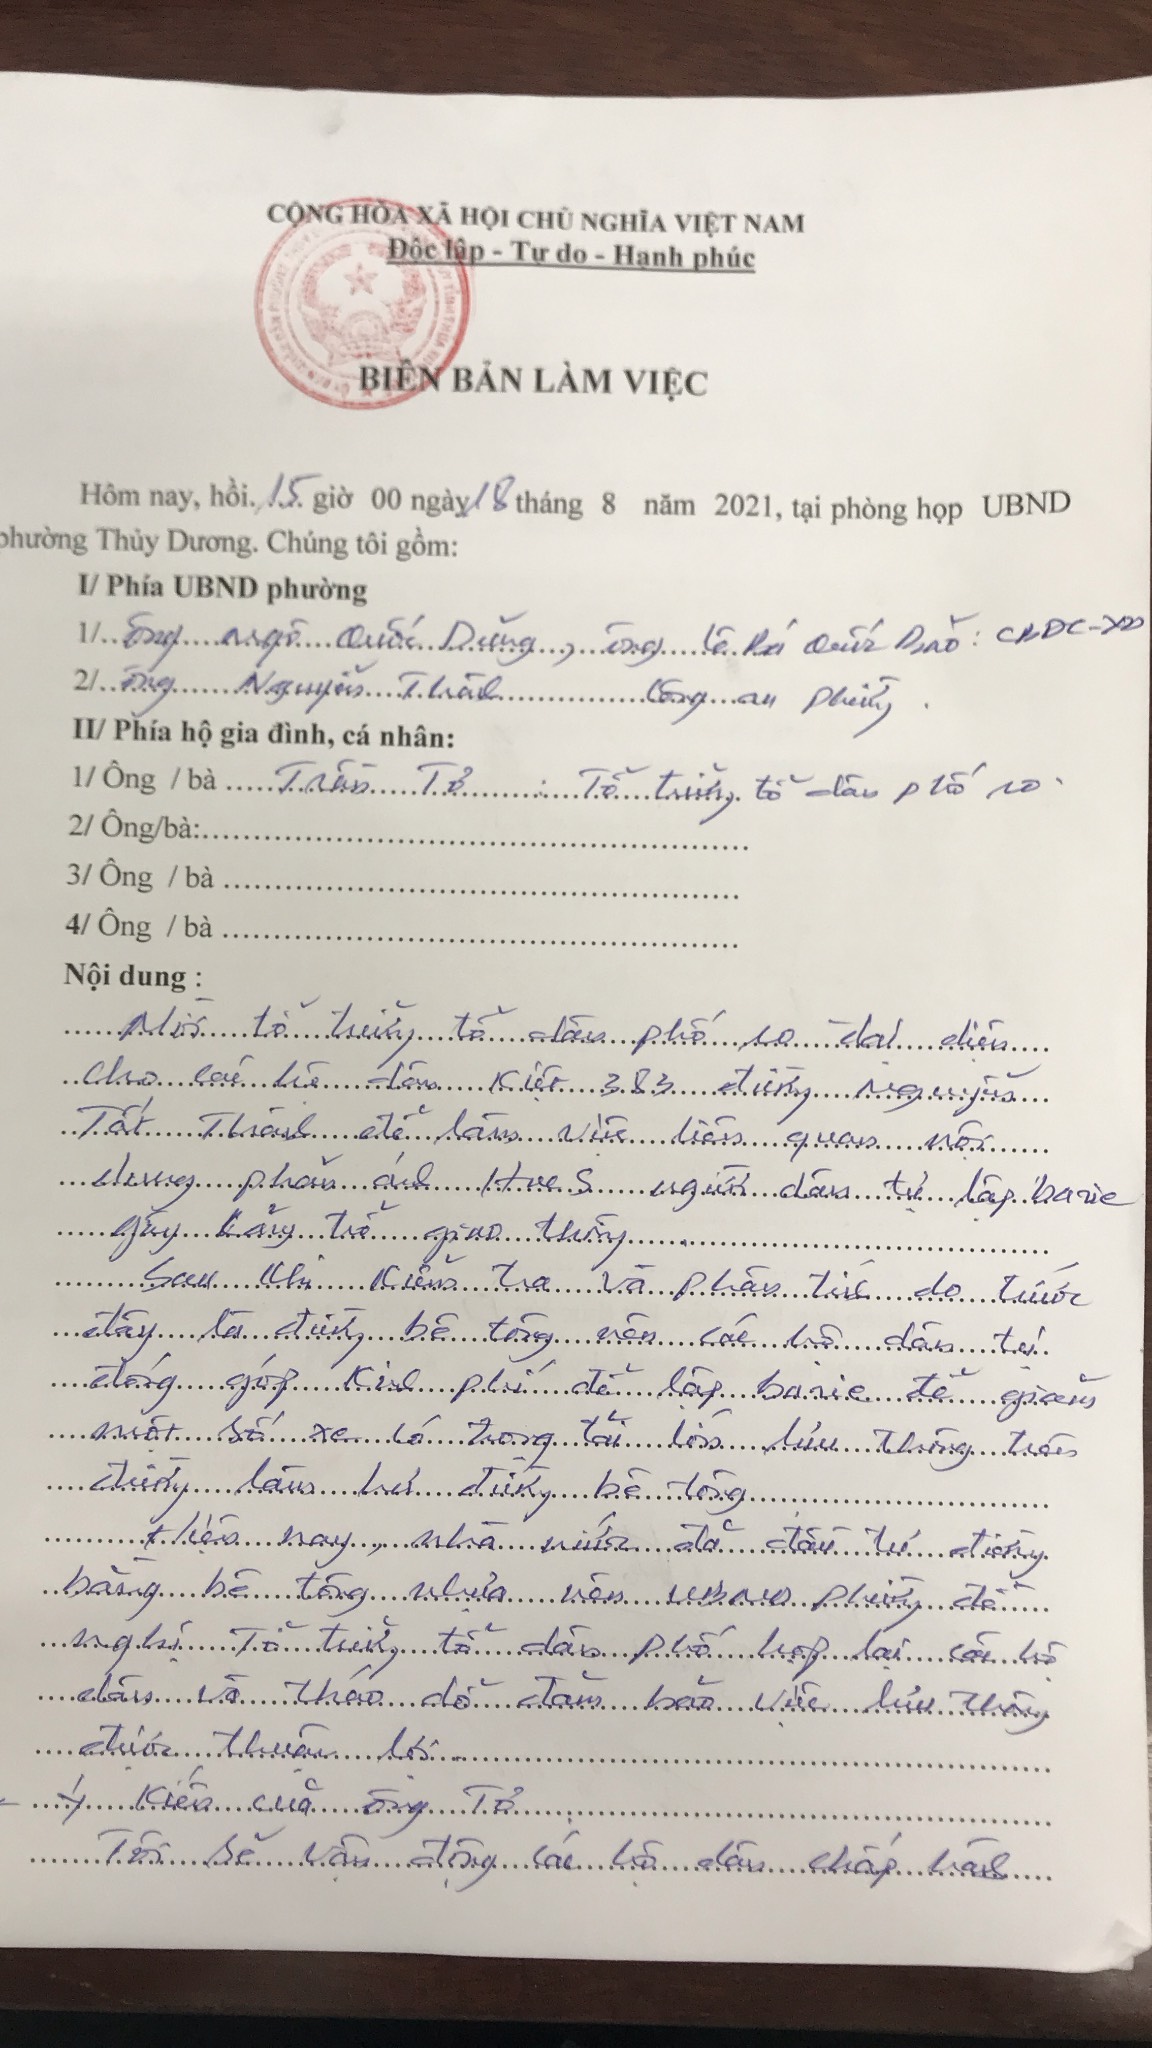 CỘNG HÒA XÃ HỘI CHỦ NGHĨA VIỆT NAM
Độc lập - Tự do - Hạnh phúc
BIÊN BẢN LÀM VIỆC
Hôm nay, hồi. 15 giờ 00 ngày 18 tháng 8 năm 2021, tại phòng họp UBND
phường Thủy Dương. Chúng tôi gồm:
I/ Phía UBND phường
1/.. ông ngô Quốc Dũng, ông lê Bá Quốc Bảo: CBĐC-XD
2/.. ông Nguyễn Thành Công an phường.
II/ Phía hộ gia đình, cá nhân:
1/ Ông / bà Trần Tở : Tổ trưởng tổ dân phố 10.
2/ Ông/bà:
3/ Ông / bà
4/ Ông / bà
Nội dung :
Mời tổ trưởng tổ dân phố 10 đại diện
cho các hộ dân Kiệt 383 đường Nguyễn
Tất Thành để làm việc liên quan nội
dung phản ánh HueS người dân tự lập barie
gây cản trở giao thông
Sau khi kiểm tra và phân tích do trước
đây là đường bê tông nên các hộ dân tự
đóng góp kinh phí để lập barie để giảm
một số xe có trọng tải lớn lưu thông trên
đường làm hư đường bê tông
Hiện nay, nhà nước đã đầu tư đường
bằng bê tông nhựa nên UBND phường đề
nghị Tổ trưởng tổ dân phố họp lại các hộ
dân và tháo dỡ đảm bảo việc lưu thông
được thuận lợi.
- Ý kiến của ông Tở
Tôi sẽ vận động các hộ dân chấp hành